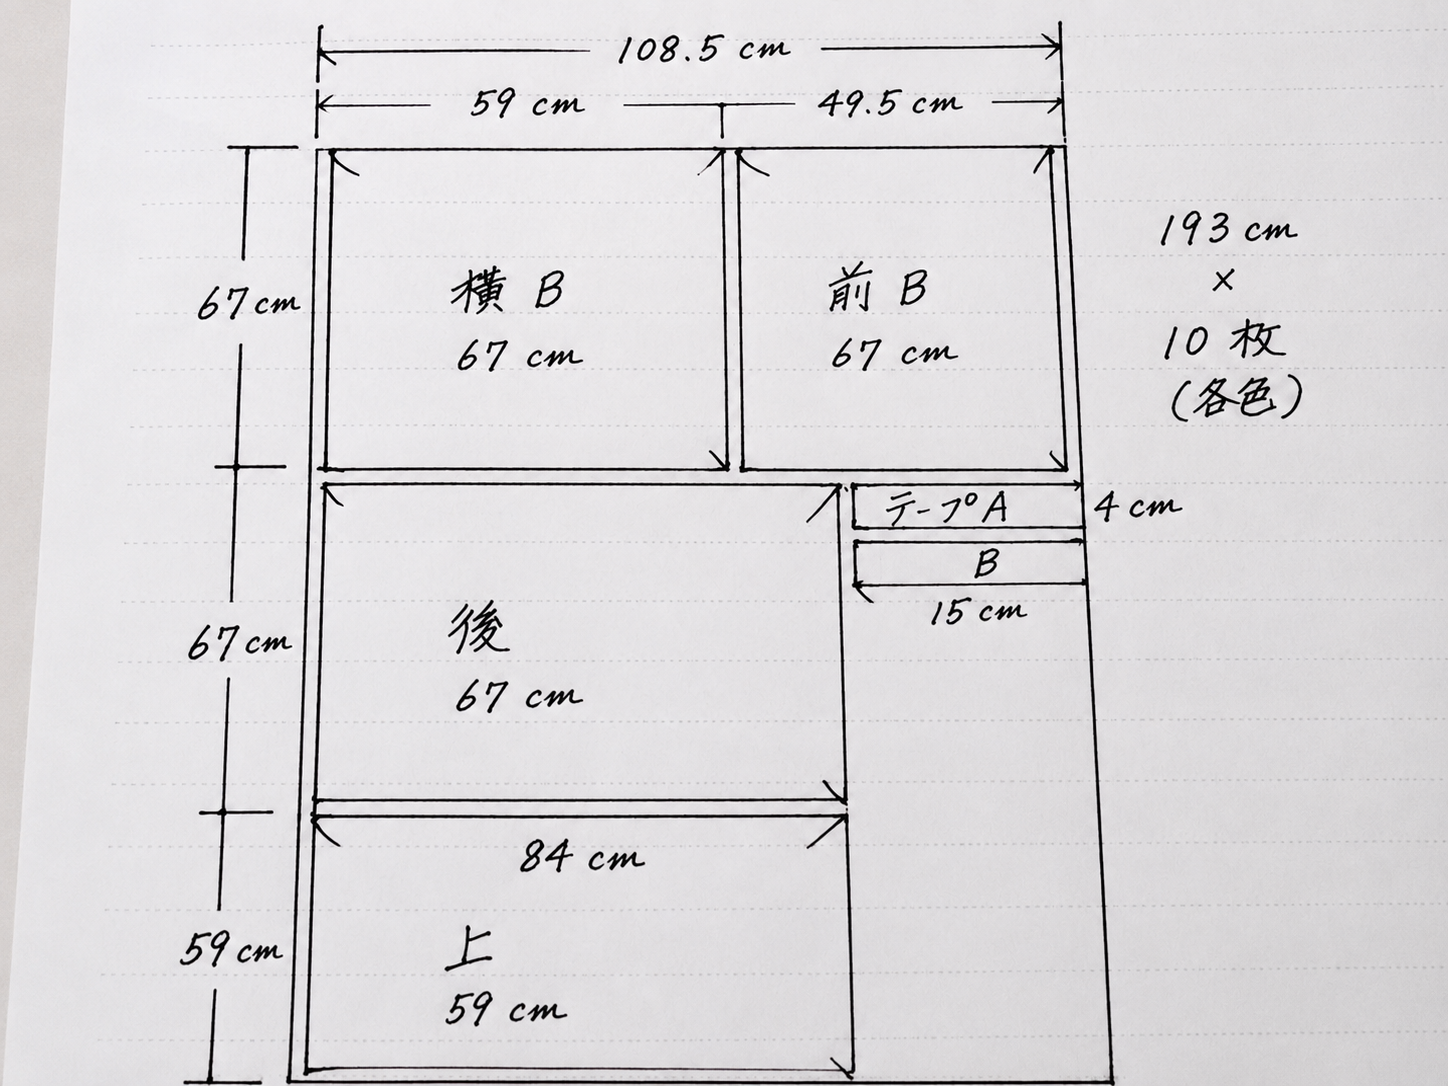 108.5 cm
59 cm
49.5 cm
67 cm
横 B
67 cm
前 B
67 cm
193 cm
×
10 枚
(各色)
テープA
4 cm
B
15 cm
67 cm
後
67 cm
84 cm
59 cm
上
59 cm